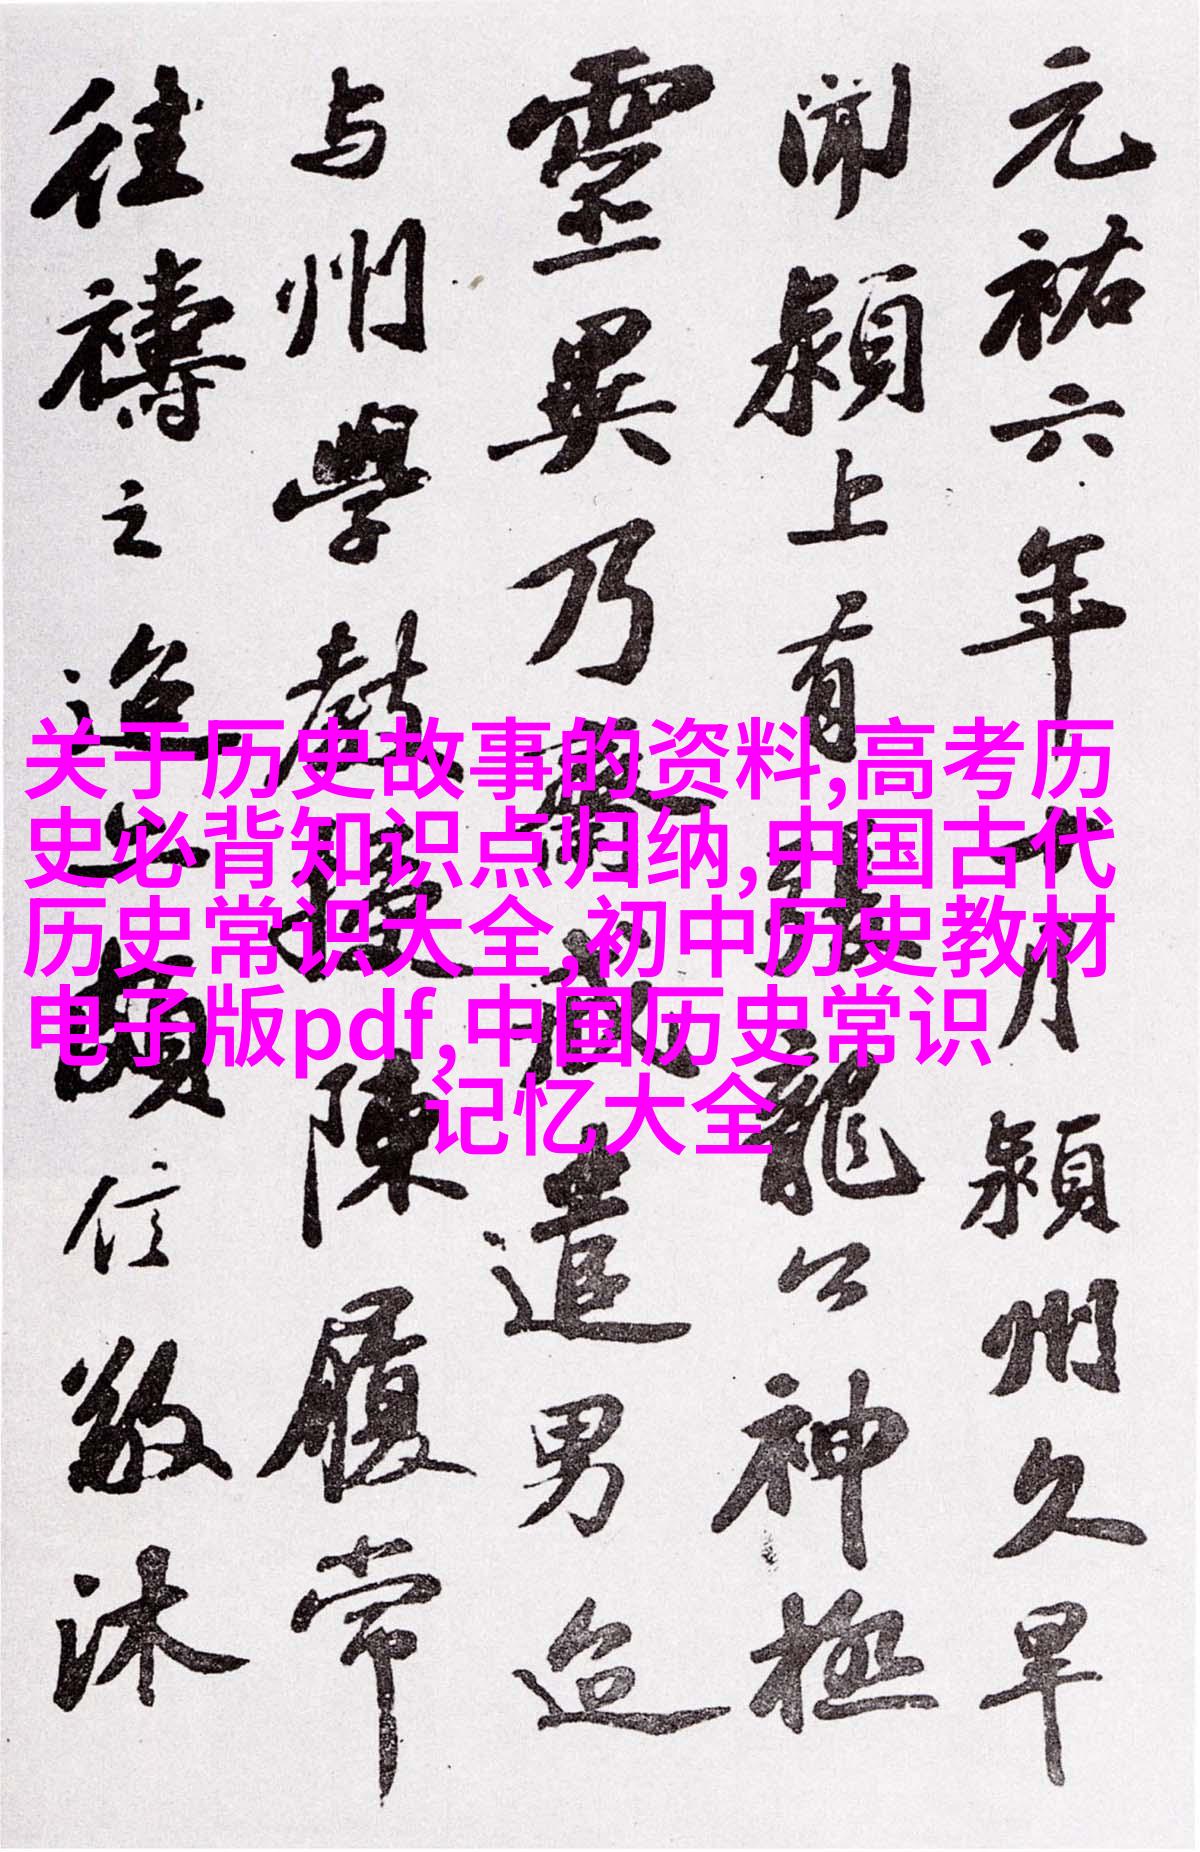 元祐六年十月潁州久旱
聞潁上有張龍公神極
靈異乃齋戒遣男迨
与州學教授陳履常
往禱之迨亦頗信敬沐
关于历史故事的资料,高考历
史必背知识点归纳,中国古代
历史常识大全,初中历史教材
电子版pdf,中国历史常识
记忆大全